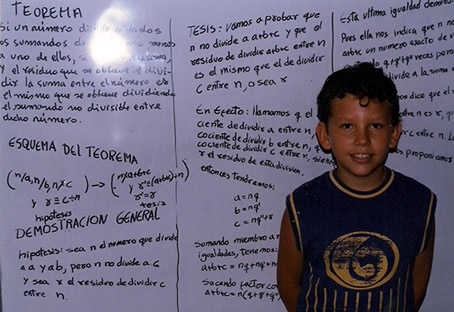 TEOREMA
si un número divide a todos
los sumandos de menos
a uno de ellos,
y el residuo que se obtiene al divi-
dir la suma entre el número es
el mismo que se obtiene dividiendo
el sumando no divisible entre
dicho número.
ESQUEMA DEL TEOREMA
hipótesis
tesis
DEMOSTRACIÓN GENERAL
Hipótesis: sea n el número que divide
a a y a b, pero n no divide a c
y sea r el residuo de dividir c
entre n.
TESIS: Vamos a probar que
n no divide a a+b+c y que el
residuo de dividir a+b+c entre n
es el mismo que el de dividir
c entre n, o sea r
En Efecto: llamamos q al
ciente de dividir a entre n,
cociente de dividir b entre n,
cociente de dividir c entre n, sien
r el residuo de esta división.
entonces tendremos:
a = nq
b = nq'
c = nq"+r
sumando miembro a m
igualdades, tenemos:
a+b+c = nq+nq'+n
sacando factor co
a+b+c = n(q+q'+q"
Esta última igualdad demu
Pues ella nos indica que n no
a+b+c un número exacto de v
veces pero
divide a la suma a
dice que el
entre n es r, q
c entre n. L
proponíamos